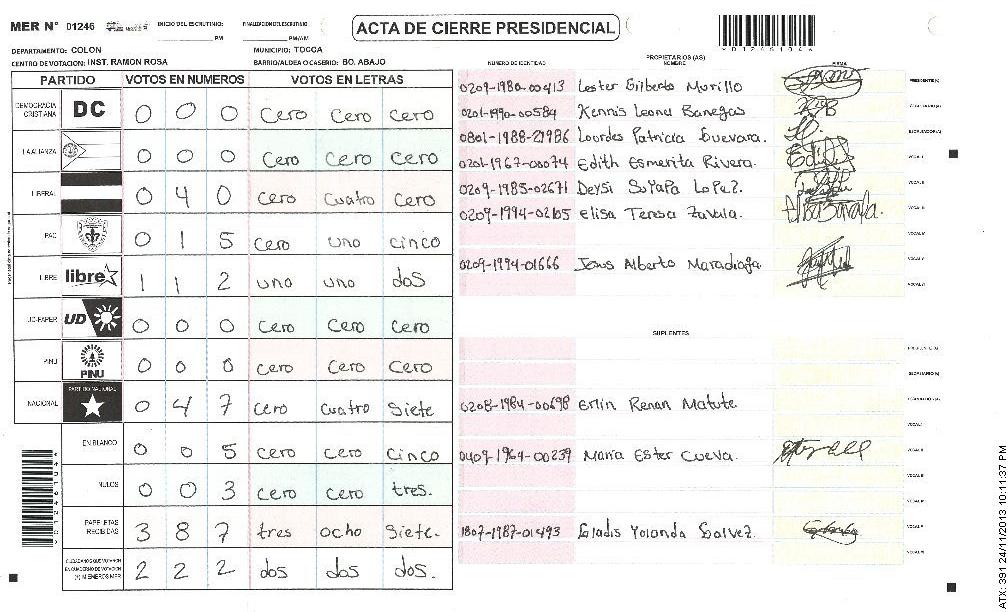 MER N° 01246
INICIO DEL ESCRUTINIO: PM
FINALIZACION DEL ESCRUTINIO: PM/AM
ACTA DE CIERRE PRESIDENCIAL
DEPARTAMENTO: COLON
MUNICIPIO: TOCOA
CENTRO DE VOTACION: INST. RAMON ROSA
BARRIO/ALDEA O CASERIO: BO. ABAJO
PARTIDO VOTOS EN NUMEROS VOTOS EN LETRAS
DEMOCRACIA CRISTIANA DC 0 0 0 Cero Cero Cero
LA ALIANZA 0 0 0 Cero Cero Cero
LIBERAL 0 4 0 Cero Cuatro Cero
PAC 0 1 5 Cero uno cinco
LIBRE libre 1 1 2 uno uno dos
UD-FAPER UD 0 0 0 Cero Cero Cero
PINU PINU 0 0 0 Cero Cero Cero
NACIONAL PARTIDO NACIONAL 0 4 7 Cero Cuatro Siete
EN BLANCO 0 0 5 Cero Cero Cinco
NULOS 0 0 3 Cero Cero tres.
PAPELETAS RECIBIDAS 3 8 7 tres ocho Siete.
CIUDADANOS QUE VOTARON EN CUADERNO DE VOTACION (+) MIEMBROS MER 2 2 2 dos dos dos.
NUMERO DE IDENTIDAD
PROPIETARIOS (AS)
NOMBRE
FIRMA
0209-1980-00413 Lester Gilberto Morillo PRESIDENTE(A)
0201-1990-00584 Kennis Leonu Banegas SECRETARIO(A)
0801-1988-21986 Lourdes Patricia Guevara. ESCRUTADOR(A)
0201-1967-00074 Edith Esmerita Rivera. VOCAL I
0209-1985-02671 Deysi Suyapa Lopez. VOCAL II
0209-1994-02165 elisa Teresa Zavala. VOCAL III
VOCAL IV
0209-1994-01666 Jesus Alberto Maradiaga VOCAL V
VOCAL VI
SUPLENTES
PRESIDENTE(A)
SECRETARIO(A)
0208-1984-00698 Erlin Renan Matute ESCRUTADOR(A)
VOCAL I
0409-1964-00239 Maria Ester Cueva. VOCAL II
VOCAL III
VOCAL IV
1807-1987-01493 Gladis Yolanda Galvez. VOCAL V
VOCAL VI
ATX: 391 24/11/2013 10:11:37 PM